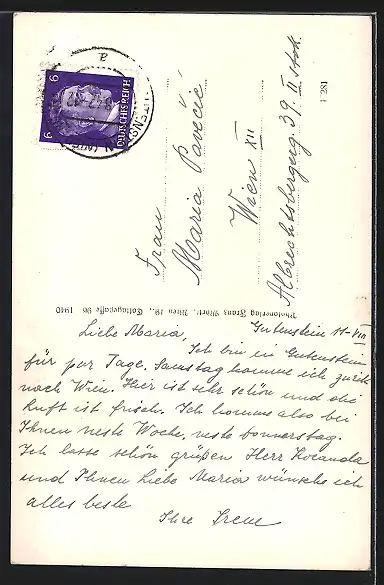 Gutenstein 11-VIII
Liebe Maria,
Ich bin in Gutenstein
für par Tage. Samstag komme ich zurück
nach Wien. Hier ist sehr schön und die
Luft ist frisch. Ich komme also bei
Ihnen neste Woche, neste Donnerstag.
Ich lasse schön grüßen Herr
und Ihnen Liebe Maria wünsche ich
alles beste
Ihre Irene
Frau
Maria Pavečić
Wien XII
Albrechtsbergerg. 39. II Stk.
Photoverlag Franz Mörtl, Wien 19., Cottagegasse 96 1940
1 281
DEUTSCHES REICH
6
6